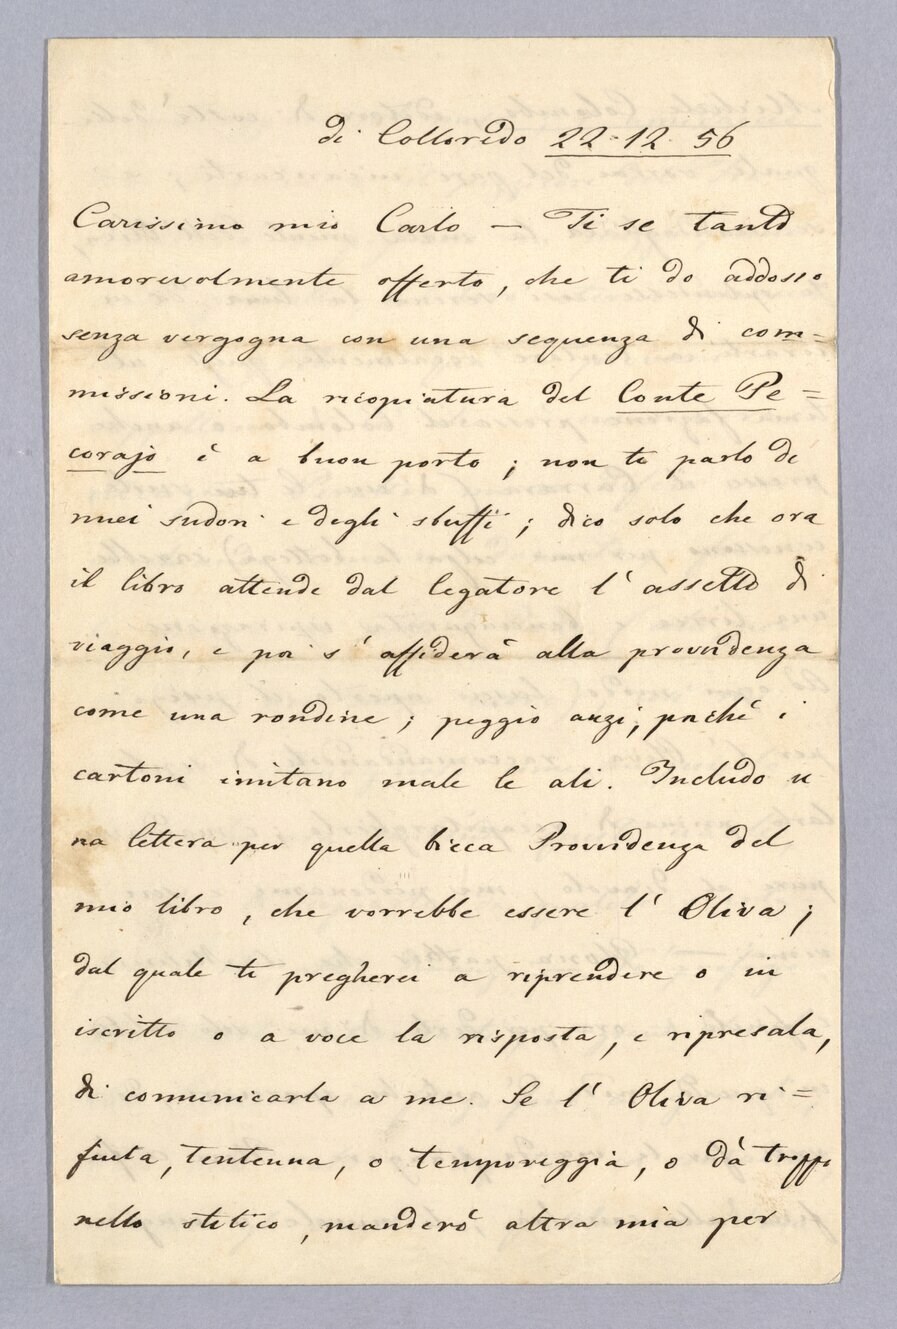 di Colloredo 22-12 56
Carissimo mio Carlo — Ti se tanto
amorevolmente offerto, che ti do addosso
senza vergogna con una sequenza di com=
missioni. La ricopiatura del Conte Pe=
corajo è a buon porto; non ti parlo de
miei sudori e degli sbuffi; dico solo che ora
il libro attende dal legatore l'assetto di
viaggio, e poi s'affiderà alla provvidenza
come una rondine; peggio anzi, poiché i
cartoni imitano male le ali. Includo u
na lettera per quella bieca Provvidenza del
mio libro, che vorrebbe essere l'Oliva;
dal quale ti pregherei a riprendere o in
iscritto o a voce la risposta, e ripresala,
di comunicarla a me. Se l'Oliva ri=
fiuta, tentenna, o temporeggia, o dà troppo
nello stitico, manderò altra mia per